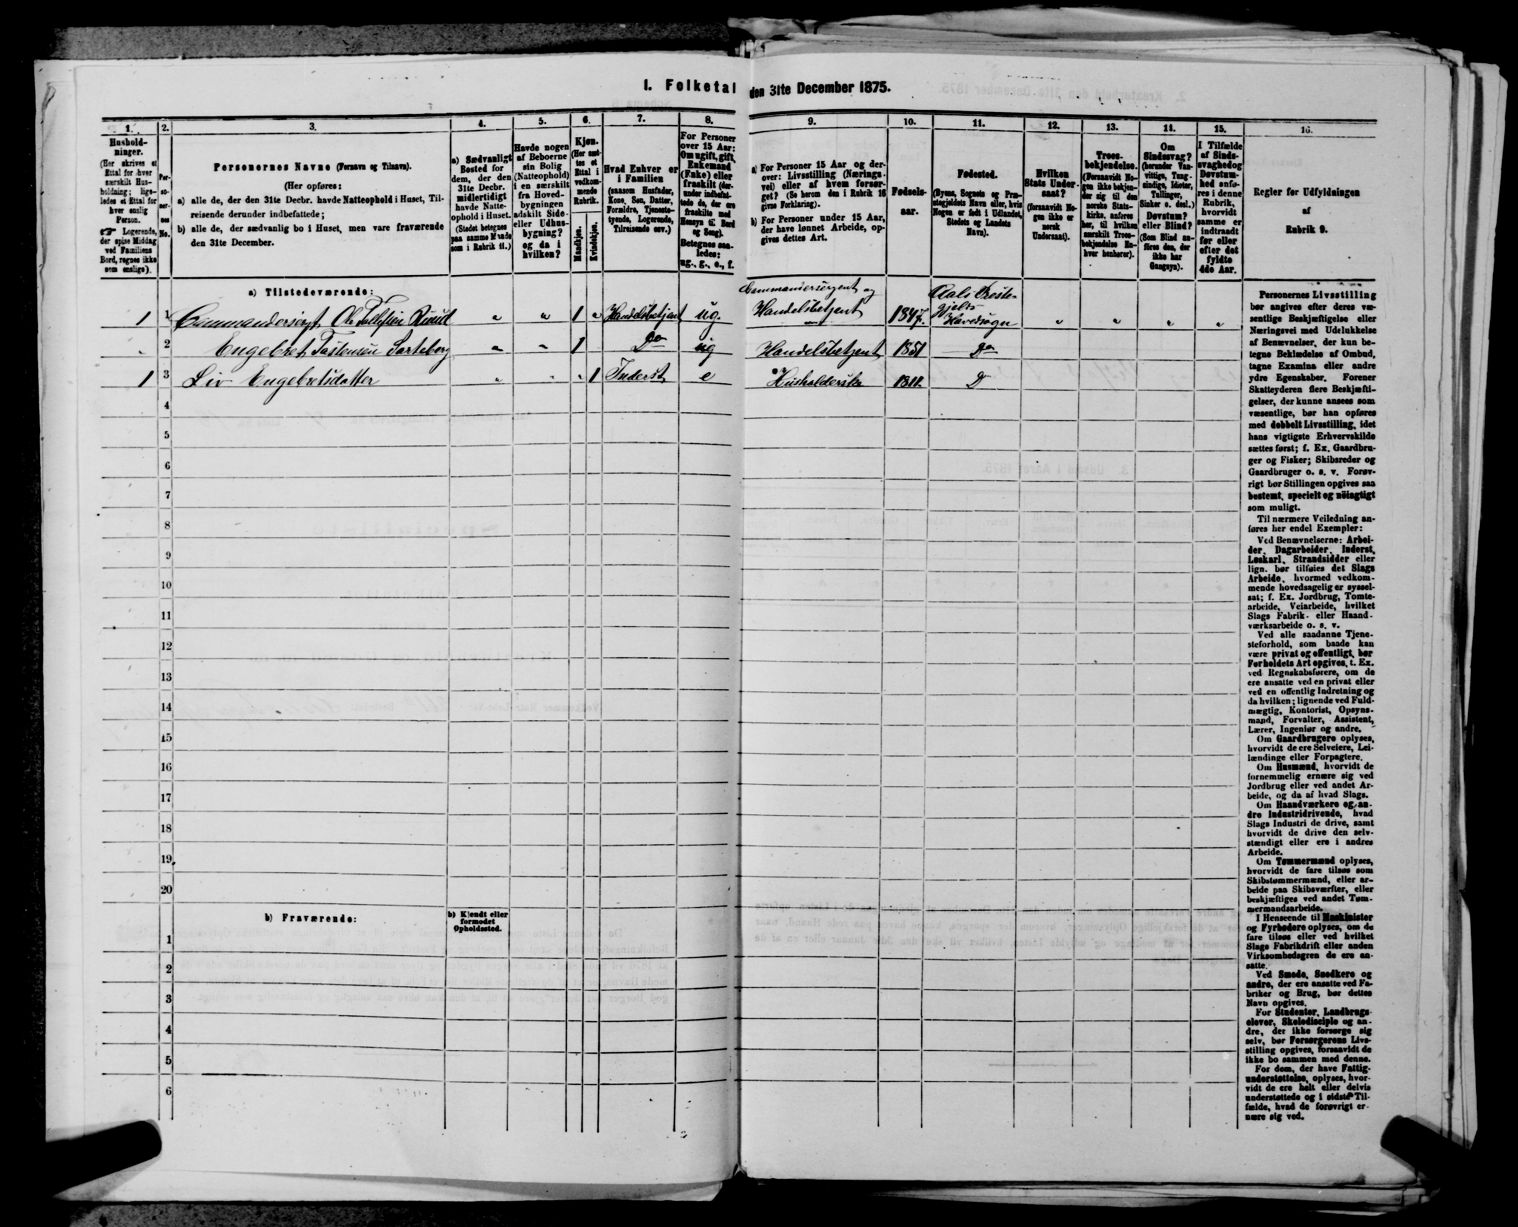 I. Folketal den 31te December 1875.
1.
Hushold-
ninger.
(Her skrives et
Ettal for hver
særskilt Hus-
holdning; lige-
ledes et Ettal for
hver enslig
Person.
Logerende,
der spise Middag
ved Familiens
Bord, regnes ikke
som enslige).
2.
Per-
so-
ner-
nes
No.
3.
Personernes Navne (Fornavn og Tilnavn).
(Her opføres:
a) alle de, der den 31te Decbr. havde Natteophold i Huset, Til-
reisende derunder indbefattede;
b) alle de, der sædvanlig bo i Huset, men vare fraværende
den 31te December.
4.
a) Sædvanligt
Bosted for
dem, der den
31te Decbr.
midlertidigt
havde Natte-
ophold i Huset.
(Stedet betegnes
paa samme Maade
som i Rubrik 11.)
5.
Havde nogen
af Beboerne
sin Bolig
(Natteophold)
i en særskilt
fra Hoved-
bygningen
adskilt Side-
eller Udhus-
bygning?
og da i
hvilken?
6.
Kjøn.
(Her sæt-
tes et
Ettal i
vedkom-
mende
Rubrik.
Mandkjøn.
Kvindekjøn.
7.
Hvad Enhver er
i Familien
(saasom Husfader,
Kone, Søn, Datter,
Forældre, Tjeneste-
tyende, Logerende,
Tilreisende osv.)
8.
For Personer
over 15 Aar:
Om ugift, gift,
Enkemand
(Enke) eller
fraskilt (der-
under indbefat-
tede de, der ere
fraskilte med
Hensyn til Bord
og Seng).
Betegnes saa-
ledes:
ug., g., e., f.
9.
a) For Personer 15 Aar og der-
over: Livsstilling (Nærings-
vei) eller af hvem forsør-
get? (Se herom den i Rubrik 16
givne Forklaring).
b) For Personer under 15 Aar,
der have lønnet Arbeide, op-
gives dettes Art.
10.
Fødsels-
aar.
11.
Fødested.
(Byens, Sognets og Præ-
stegjeldets Navn eller, hvis
Nogen er født i Udlandet,
Stedets og Landets
Navn).
12.
Hvilken
Stats Under-
saat?
(forsaavidt No-
gen ikke er
norsk
Undersaat).
13.
Troes-
bekjendelse.
(Forsaavidt No-
gen ikke bekjen-
der sig til den
norske Stats-
kirke, anføres
her, til hvilken
særskilt Troes-
bekjendelse En-
hver henhører).
14.
Om
Sindssvag?
(herunder Van-
vittige, Tung-
sindige, Idioter,
Tullinger,
Sinker o. desl.)
Døvstum?
eller Blind?
(Som Blind an-
føres den, der
ikke har
Gangsyn).
15.
I Tilfælde
af Sinds-
svaghed og
Døvstum-
hed anfø-
res i denne
Rubrik,
hvorvidt
samme er
indtraadt
før eller
efter det
fyldte
4de Aar.
16.
Regler før Udfyldningen
af
Rubrik 9.
a) Tilstedeværende:
1 1 Commandersergt. Ole Tollefsen Ruud " " 1 " Handelsbetjent ug. Commandersergent og Handelsbetjent 1847. Aals Præste-
Gjelds
Hovedsogn " " " "
" 2 Engebret Tostensen " " 1 Do ug Handelsbetjent 1851 Do
1 3 Liv Engebretsdatter " " " 1 Inderst e Husholderske 1811. D
4
5
6
7
8
9
10
11
12
13
14
15
16
17
18
19
20
b) Fraværende:
b) Kjendt eller
formodet
Opholdssted.
1
2
3
4
5
6
Personernes Livsstilling
bør angives efter deres væ-
sentlige Beskjæftigelse eller
Næringsvei med Udelukkelse
af Benævnelser, der kun be-
tegne Beklædelse af Ombud,
tagne Examina eller andre
ydre Egenskaber. Forener
Skatteyderen flere Beskjæfti-
gelser, der kunne ansees som
væsentlige, bør han opføres
med dobbelt Livsstilling, idet
hans vigtigste Erhvervskilde
sættes først; f. Ex. Gaardbru-
ger og Fisker; Skibsreder og
Gaardbruger o. s. v. Forøv-
rigt bør Stillingen opgives saa
bestemt, specielt og nöiagtigt
som muligt.
Til nærmere Veiledning an-
føres her endel Exempler:
Ved Benævnelserne: Arbei-
der, Dagarbeider, Inderst,
Løskarl, Strandsidder eller
lign. bør tilføies det Slags
Arbeide, hvormed vedkom-
mende hovedsagelig er syssel-
sat; f. Ex. Jordbrug, Tomte-
arbeide, Veiarbeide, hvilket
Slags Fabrik- eller Haand-
værksarbeide o. s. v.
Ved alle saadanne Tjene-
steforhold, som baade kan
være privat og offentligt, bør
Forholdets Art opgives, t. Ex.
ved Regnskabsførere, om de
ere ansatte ved en privat eller
ved en offentlig Indretning og
da hvilken; lignende ved Fuld-
mægtig, Kontorist, Opsyns-
mand, Forvalter, Assistent,
Lærer, Ingeniør og andre.
Om Gaardbrugere oplyses,
hvorvidt de ere Selveiere, Lei-
lændinge eller Forpagtere.
Om Husmænd, hvorvidt de
fornemmelig ernære sig ved
Jordbrug eller ved andet Ar-
beide, og da af hvad Slags.
Om Haandværkere og an-
dre Industridrivende, hvad
Slags Industri de drive, samt
hvorvidt de drive den selv-
stændigt eller ere i andres
Arbeide.
Om Tømmermænd oplyses,
hvorvidt de fare tilsøs som
Skibstømmermænd, eller ar-
beide paa Skibsværfter, eller
beskjæftiges ved andet Tøm-
mermandsarbeide.
I Henseende til Maskinister
og Fyrbødere oplyses, om de
fare tilsøs eller ved hvilket
Slags Fabrikdrift eller anden
Virksomhedsgren de ere an-
satte.
Ved Smede, Snedkere og
andre, der ere ansatte ved Fa-
briker og Brug, bør dettes
Navn opgives.
For Studenter, Landbrugs-
elever, Skoledisciple og an-
dre, der ikke forsørge sig
selv, bør Forsørgerens Livs-
stilling opgives, forsaavidt de
ikke bo sammen med denne.
For dem, der have Fattig-
understøttelse, oplyses, hvor-
vidt de ere helt eller delvis
understøttede og i sidste Til-
fælde, hvad de forøvrigt er-
nære sig ved.